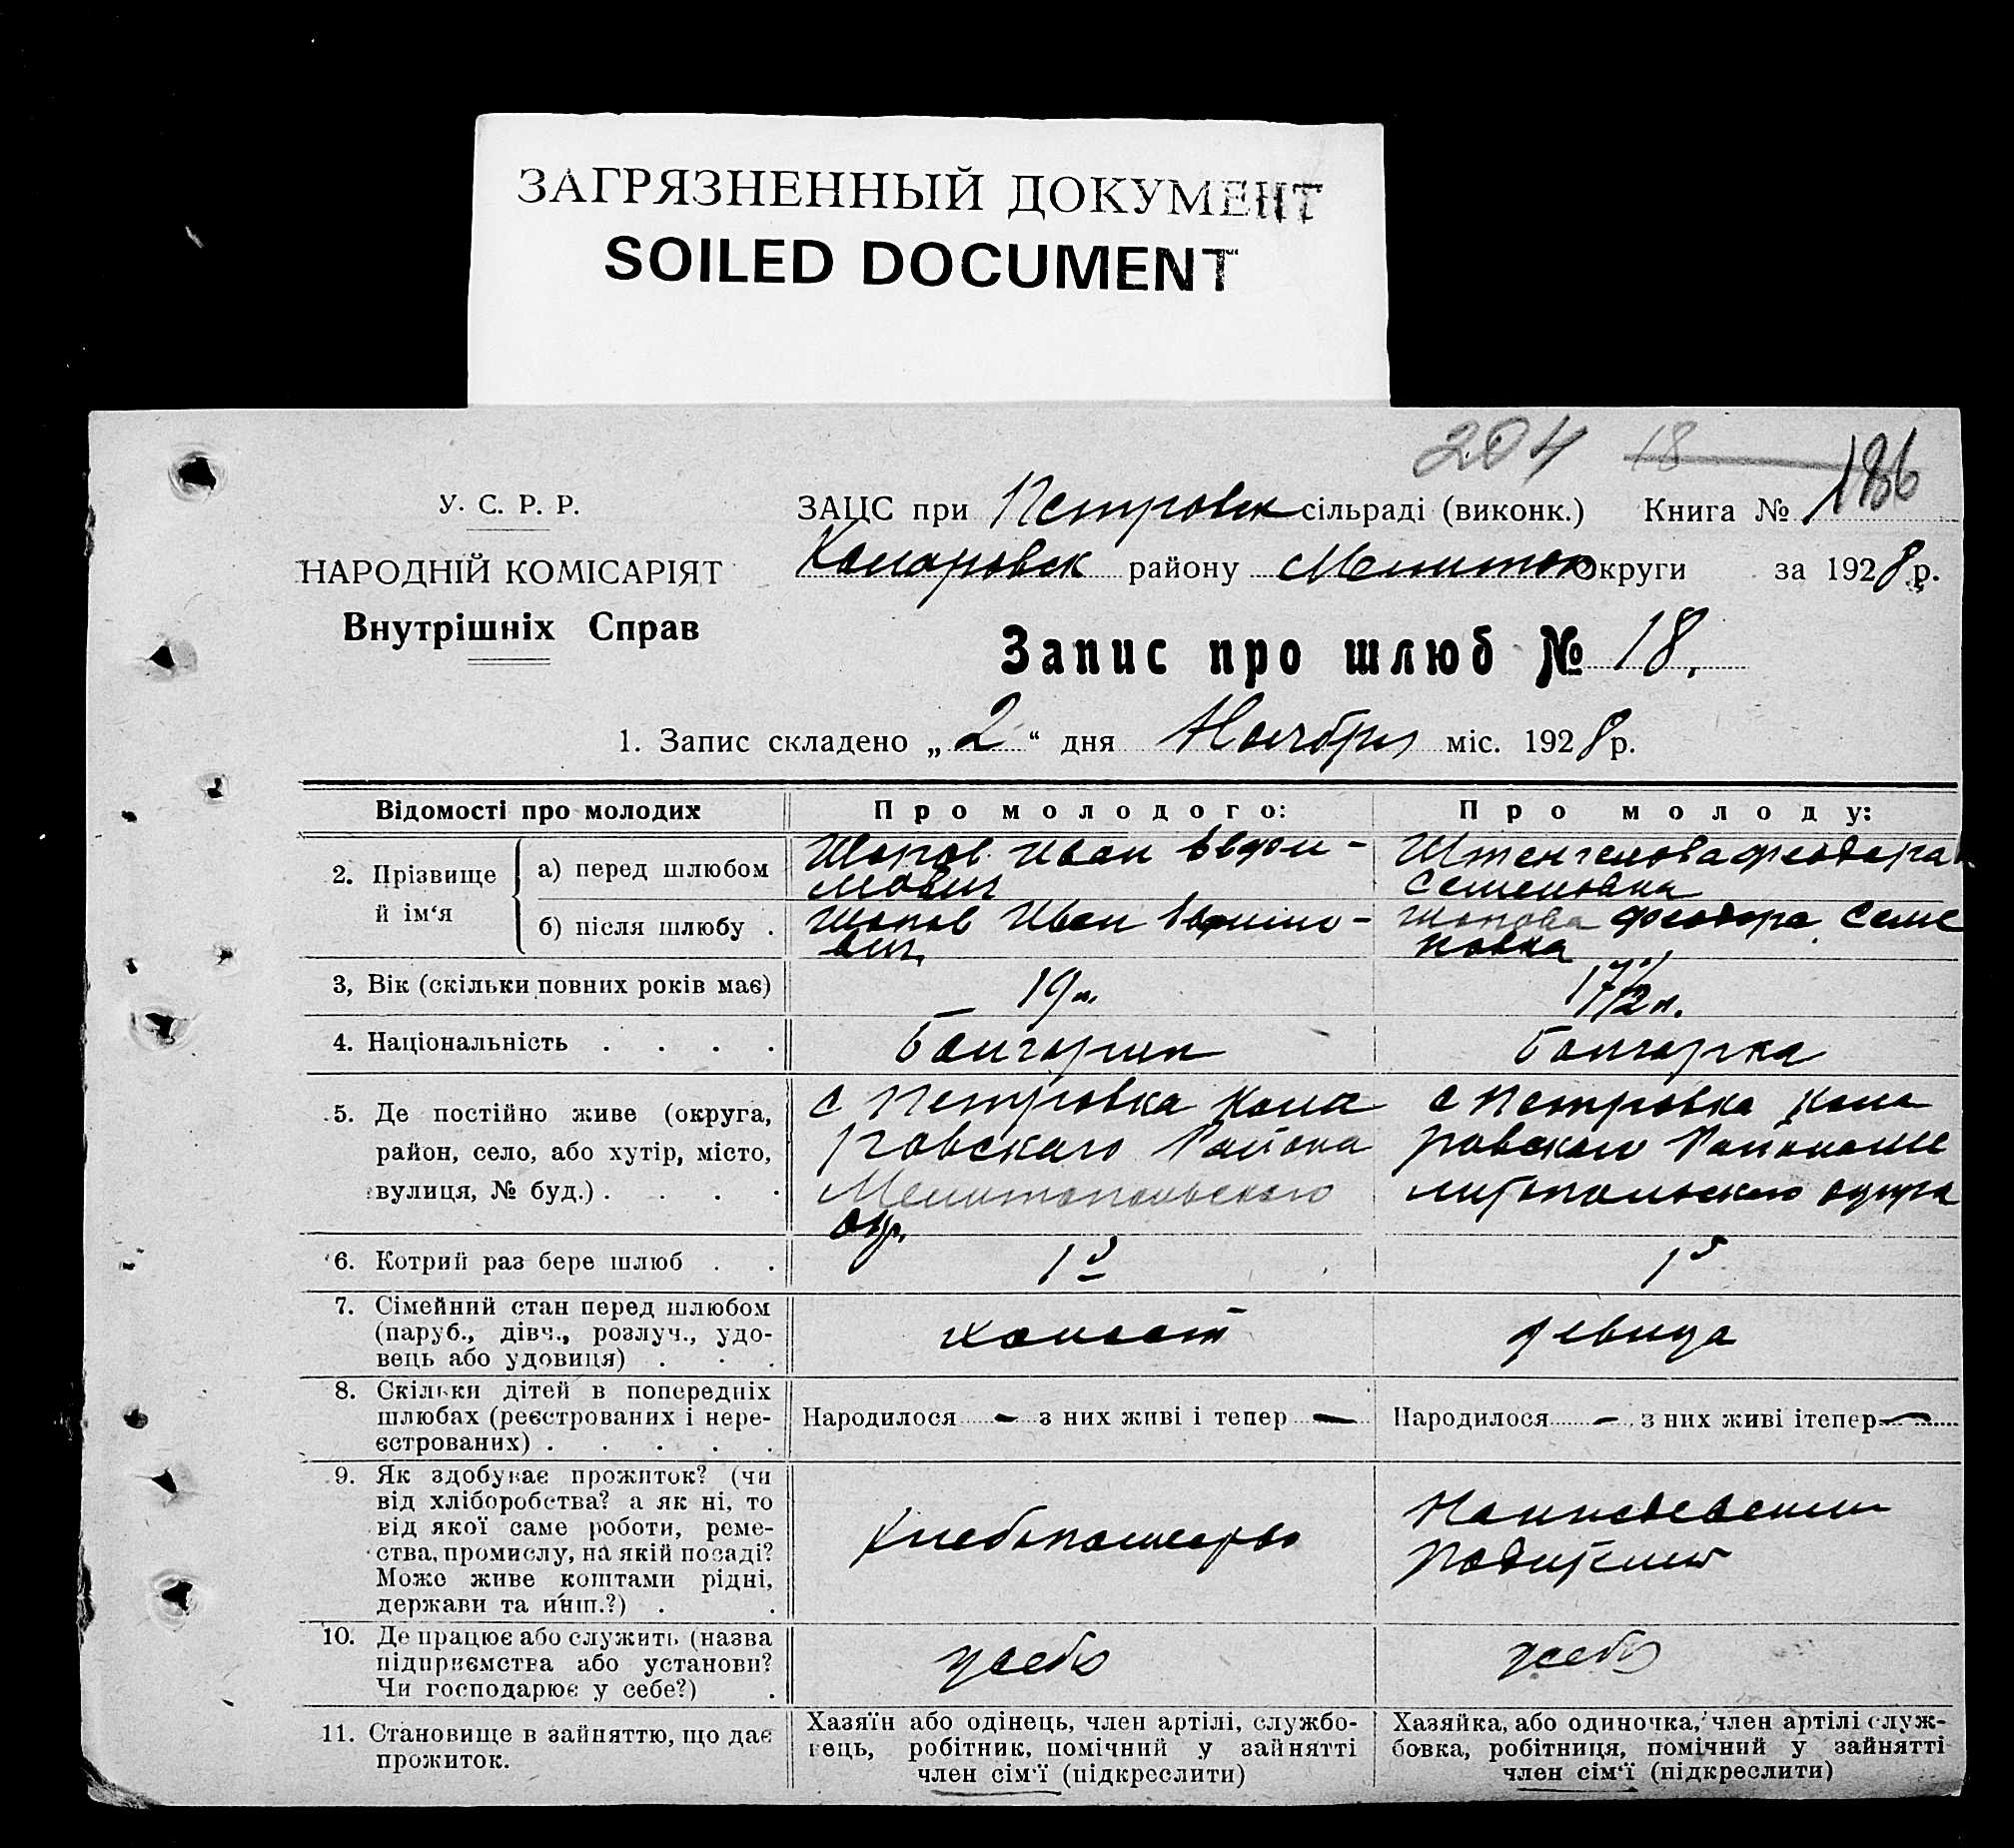 ЗАГРЯЗНЕННЫЙ ДОКУМЕНТ
SOILED DOCUMENT
204 18 186
У. С. Р. Р.
НАРОДНІЙ КОМІСАРІЯТ
Внутрішніх Справ
ЗАЦС при Петровск сільраді (виконк.) Книга №
Коларовск району Мелитоп Округи за 1928 р.
Запис про шлюб № 18.
1. Запис складено „2“ дня Ноября міс. 1928 р.
Відомості про молодих
Про молодого:
Про молоду:
2. Прізвище й ім‘я
а) перед шлюбом
Шопов Иван Евдоки-
мович
Феодора
Семеновна
б) після шлюбу .
Шопов Иван
вич
Шопова Феодора Семе
новна
3, Вік (скільки повних років має)
19 л.
17 1/2 л.
4. Національність . . . .
Болгарин
Болгарка
5. Де постійно живе (округа,
район, село, або хутір, місто,
вулиця, № буд.) . . . .
с Петровка Кола
ровского Района
Мелитопольского
окр.
с Петровка Кола
ровского Района Ме
литопольского округа
6. Котрий раз бере шлюб . .
1й
1й
7. Сімейний стан перед шлюбом
(паруб., дівч., розлуч., удо-
вець або удовиця) . . .
холост
девица
8. Скільки дітей в попередніх
шлюбах (реєстрованих і нере-
єстрованих) . . . . .
Народилося — з них живі і тепер —
Народилося — з них живі ітепер —
9. Як здобуває прожиток? (чи
від хліборобства? а як ні, то
від якої саме роботи, реме-
ства, промислу, на якій посаді?
Може живе коштами рідні,
держави та инш.?) . .
Хлебопашество
На иждевении
Родителей
10. Де працює або служить (назва
підприємства або установи?
Чи господарює у себе?) .
у себя
у себя
11. Становище в зайняттю, що дає
прожиток.
Хазяїн або одінець, член артілі, службо-
вець, робітник, помічний у зайнятті
член сім‘ї (підкреслити)
Хазяйка, або одиночка, член артілі служ-
бовка, робітниця, помічний у зайнятті
член сім‘ї (підкреслити)